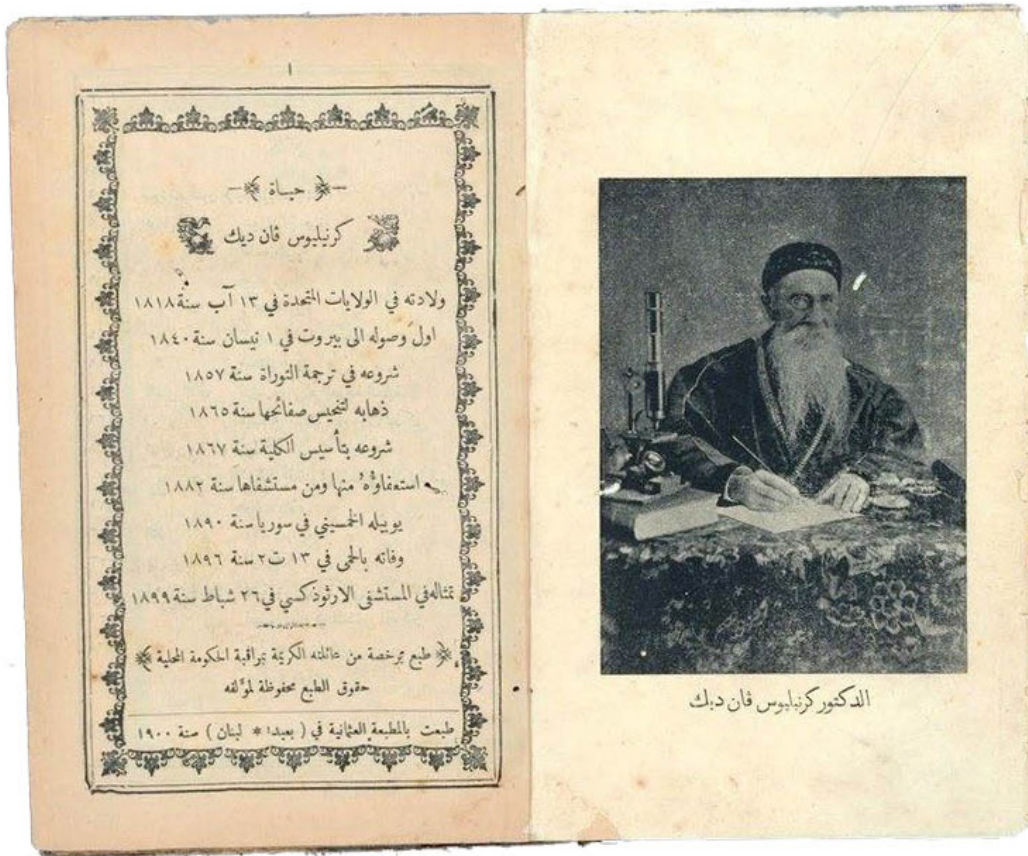 ١
حياة
كرنيليوس ڤان ديك
ولادته في الولايات المتحدة في ١٣ آب سنة ١٨١٨
اول وصوله الى بيروت في ١ نيسان سنة ١٨٤٠
شروعه في ترجمة التوراة سنة ١٨٥٧
ذهابه لتنحيس صفائحها سنة ١٨٦٥
شروعه بتأسيس الكلية سنة ١٨٦٧
استعفاؤُهُ منها ومن مستشفاها سنة ١٨٨٢
يوبيله الخمسيني في سوريا سنة ١٨٩٠
وفاته بالحمى في ١٣ ت٢ سنة ١٨٩٦
تمثاله في المستشفى الارثوذكسي في ٢٦ شباط سنة ١٨٩٩
طبع برخصة من عائلته الكريمة بمراقبة الحكومة المحلية
حقوق الطبع محفوظة لمؤلفه
طبعت بالمطبعة العثمانية في ( بعبدا * لبنان ) سنة ١٩٠٠
الدكتور كرنيليوس ڤان ديك